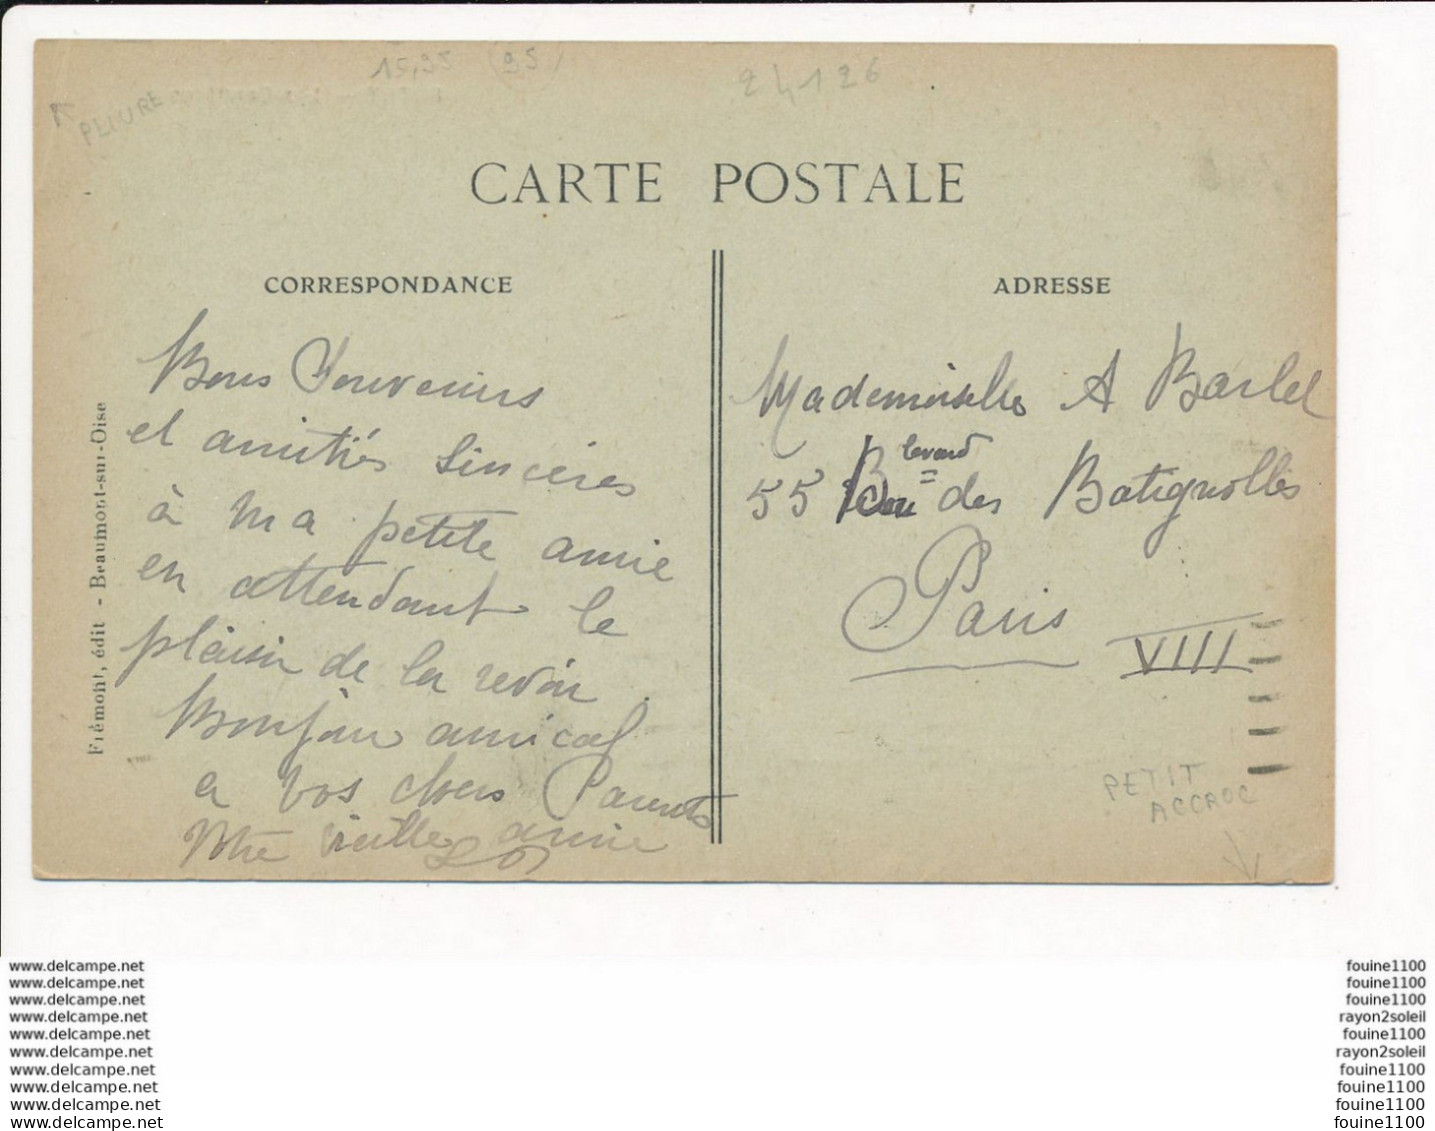 15,95 (95)
24126
PLIURE
CARTE POSTALE
CORRESPONDANCE
Bons Souvenirs
et amitiés sincères
à ma petite amie
en attendant le
plaisir de la revoir
Bonjour amical
a vos chers Parents
Votre vieille amie
Frémont, édit - Beaumont-sur-Oise
ADRESSE
Mademoiselle A Barlet
55 Boulevard des Batignolles
Paris
VIII
PETIT
ACCROC
www.delcampe.net
www.delcampe.net
www.delcampe.net
www.delcampe.net
www.delcampe.net
www.delcampe.net
www.delcampe.net
www.delcampe.net
www.delcampe.net
www.delcampe.net
fouine1100
fouine1100
fouine1100
rayon2soleil
fouine1100
rayon2soleil
fouine1100
fouine1100
fouine1100
fouine1100